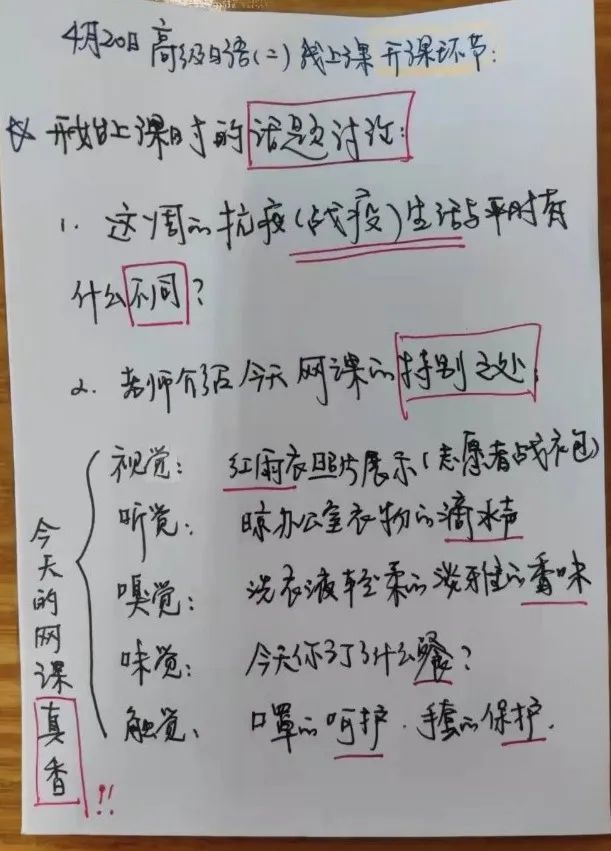 4月20日 高级日语(二)线上课 开课环节:
☆ 开始上课时的话题讨论:
1. 这周的抗疫(战疫)生活与平时有
什么不同?
2. 老师介绍今天网课的特别之处:
今天的网课真香!!
视觉: 红雨衣照片展示(志愿者战衣包)
听觉: 晾办公室衣物的滴水声
嗅觉: 洗衣液轻柔的淡雅的香味
味觉: 今天你订了什么餐?
触觉: 口罩的呵护·手套的保护.